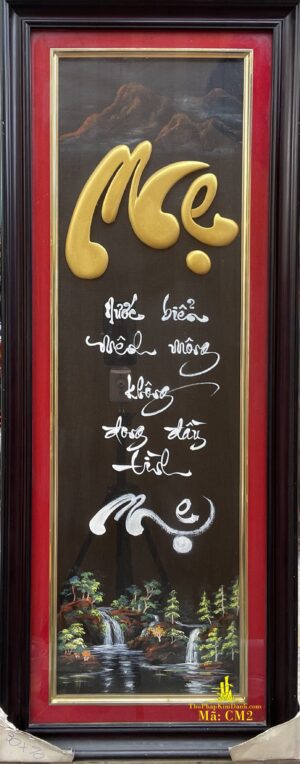 Mẹ
Nước biển
mênh mông
không
đong đầy
tình
Mẹ
ThuPhapKimDanh.com
Mã: CM2